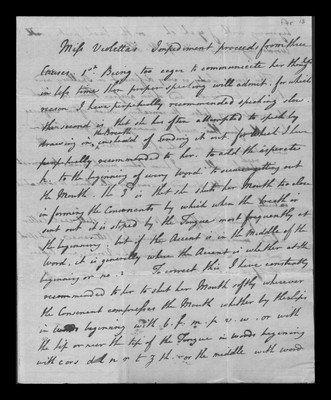 Miss Violetta's Impediment proceeds from three
Causes. 1st. Being too eager to communicate her thoughts
in less time than proper speaking will admit: for which
reason I have perpetually recommended speaking slow
the second is that she has often attempted to speak by
the Breath
drawing in, instead of sending it out for what I have
perpetually recommended to her to add the aspirate
h, to the beginning of every Word to
the Mouth. the 3d. is that she shuts her Mouth too close
in forming the Consonants by which when the breath is
sent out it is stoped by the Tongue most frequently at
the beginning, but if the Accent is in the Middle of the
Word, it is generally where the Accent is whether at the
beginning or no. To correct this, I have constantly
recommended to her to shut her Mouth softly wherever
the Consonant compresses the Mouth whether by the lips
in words beginning with b. f. m. p. v. w. or with
the tip or near the tip of the Tongue in words beginning
with c or s d l n r t z th. or the middle with words